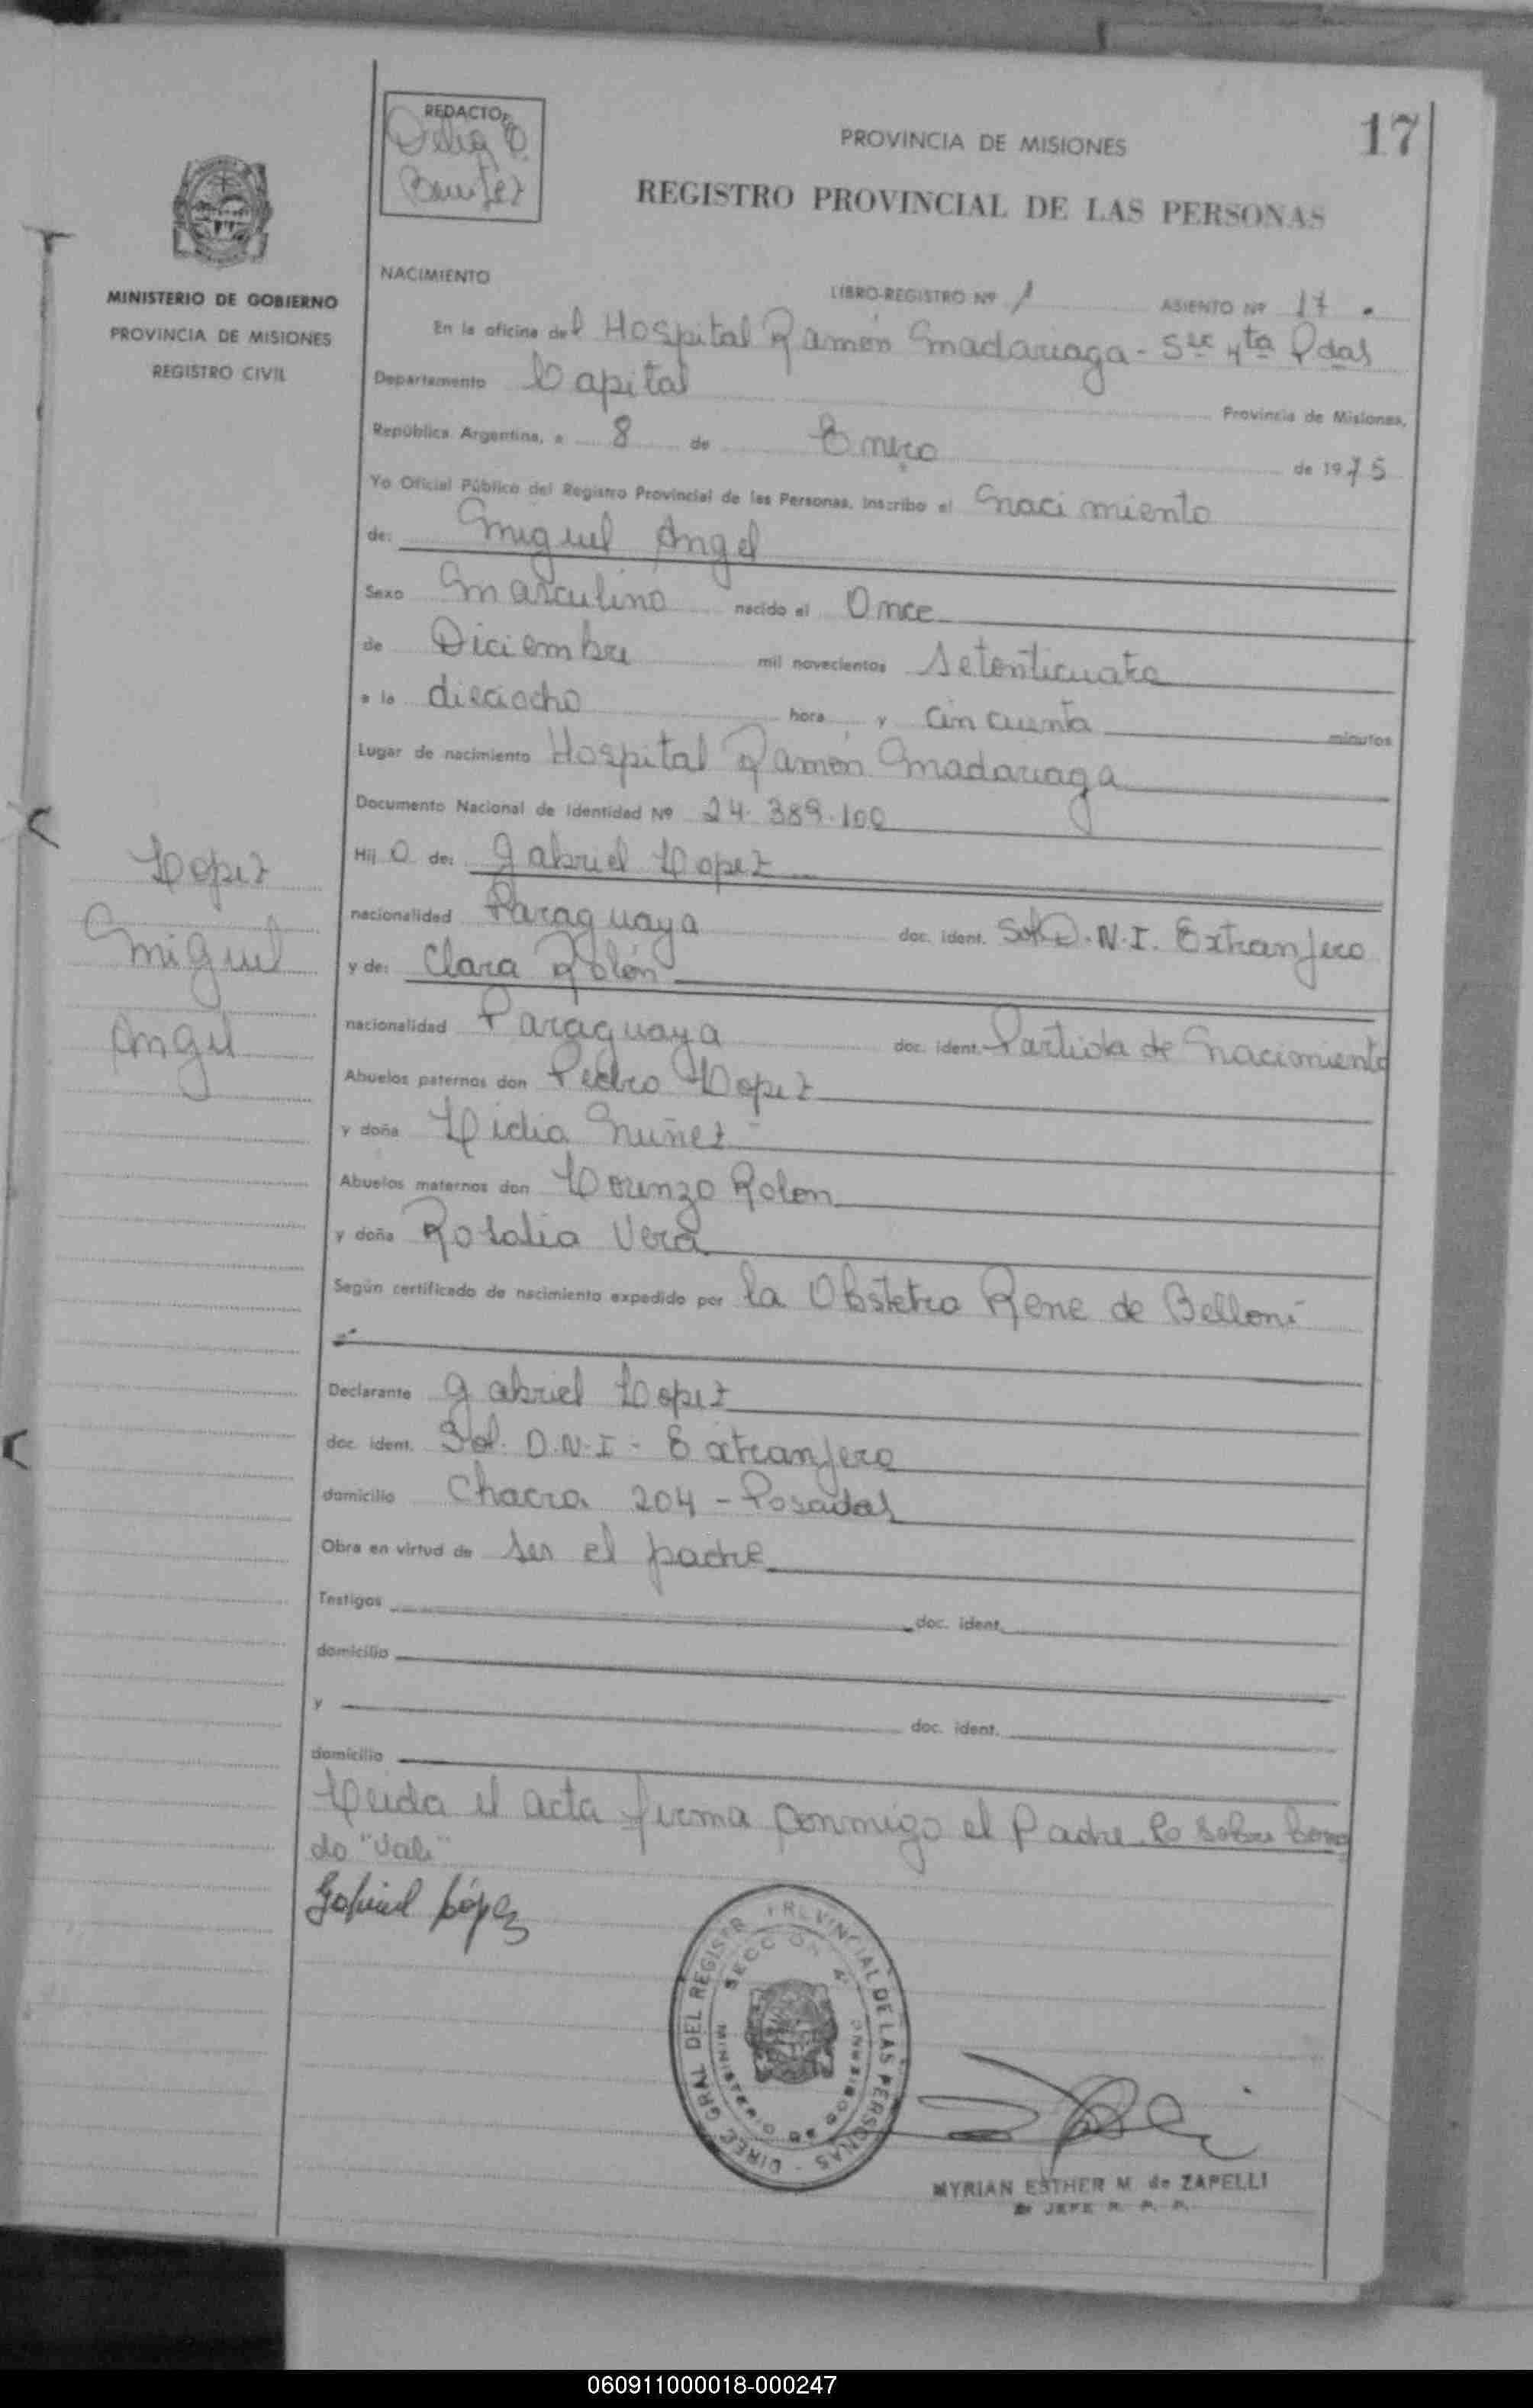 REDACTOR
Delia O.
Benitez
PROVINCIA DE MISIONES
17
REGISTRO PROVINCIAL DE LAS PERSONAS
MINISTERIO DE GOBIERNO
PROVINCIA DE MISIONES
REGISTRO CIVIL
NACIMIENTO LIBRO-REGISTRO Nº 1 ASIENTO Nº 17.
En la oficina del Hospital Ramón Madariaga - Sec 4ta Pdas
Departamento Capital Provincia de Misiones,
República Argentina, a 8 de Enero de 1975
Yo Oficial Público del Registro Provincial de las Personas, inscribo el Nacimiento
de: Miguel Angel
Sexo Masculino nacido el Once
de Diciembre mil novecientos setenticuatro
a la dieciocho hora y cincuenta minutos
Lugar de nacimiento Hospital Ramón Madariaga
Documento Nacional de Identidad Nº 24.389.100
Hij o de: Gabriel Lopez
nacionalidad Paraguaya doc. ident. Sol D.N.I. Extranjero
y de: Clara Rolón
nacionalidad Paraguaya doc. ident. Partida de Nacimiento
Abuelos paternos don Pedro Lopez
y doña Lidia Nuñez
Abuelos maternos don Lorenzo Rolon
y doña Rosalia Vera
Según certificado de nacimiento expedido por la Obstetra Rene de Belloni
Declarante Gabriel Lopez
doc. ident. Sol. D.N.I - Extranjero
domicilio Chacra 204 - Posadas
Obra en virtud de ser el padre
Testigos doc. ident.
domicilio
y doc. ident.
domicilio
Leida el acta firma conmigo el Padre. Lo sobre borra
do "Vale"
Gabriel López
Lopez
Miguel
Angel
DIREC. GRAL DEL REGISTR PROVINCIAL DE LAS PERSONAS
SECCION 4ª
MINISTERIO DE GOBIERNO
MYRIAN ESTHER M. de ZAPELLI
JEFE R. P. P.
060911000018-000247